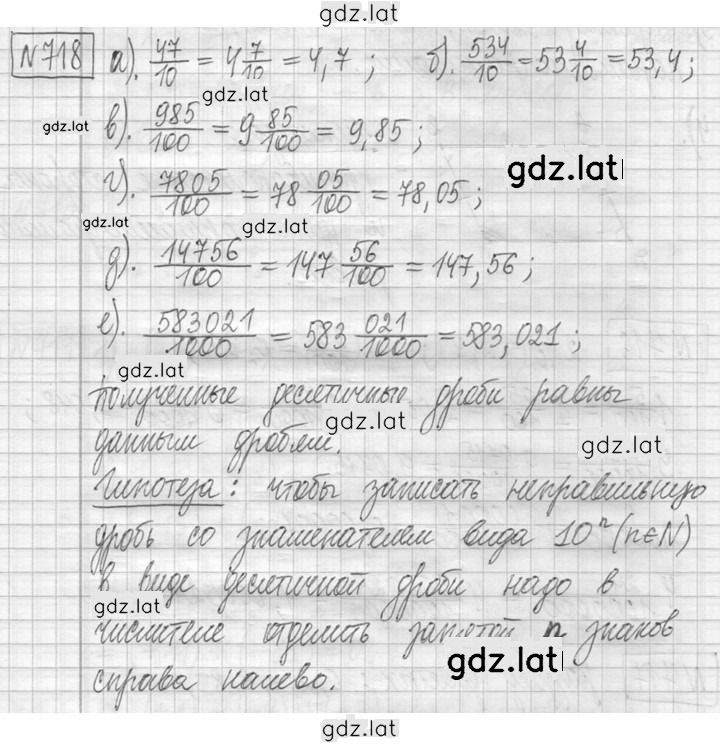 gdz.lat
№718 а). 47/10 = 4 7/10 = 4,7 ; б). 534/10 = 53 4/10 = 53,4 ;
gdz.lat
gdz.lat в). 985/100 = 9 85/100 = 9,85 ;
gdz.lat
г). 7805/100 = 78 05/100 = 78,05 ;
gdz.lat gdz.lat
д). 14756/100 = 147 56/100 = 147,56 ;
е). 583021/1000 = 583 021/1000 = 583,021 ;
gdz.lat
Полученные десятичные дроби равны
gdz.lat
данным дробям.
gdz.lat
Гипотеза : чтобы записать неправильную
дробь со знаменателем вида 10ⁿ (n∈N)
в виде десятичной дроби надо в
gdz.lat
числителе отделить запятой n знаков
gdz.lat
справа налево.
gdz.lat